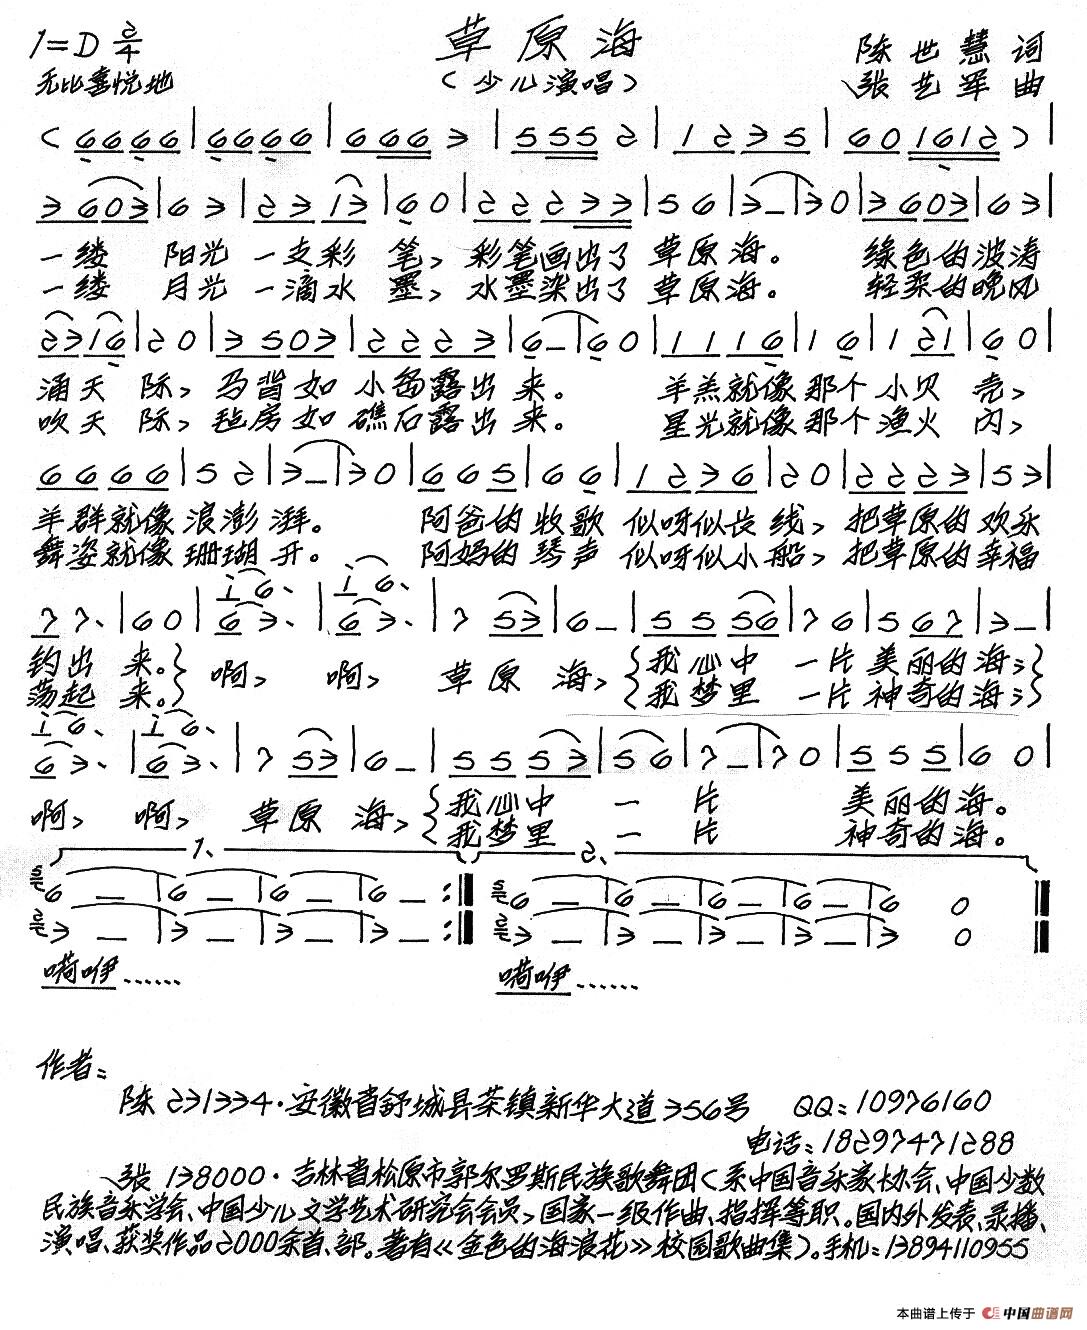 草原海
1=D 2/4
（少儿演唱）
陈世慧 词
无比喜悦地
张艺军 曲
( 6 6 6 6 | 6 6 6 6 | 6 6 6 3 | 5 5 5 2 | 1 2 3 5 | 6 0 1 6 1 2 ) |
3 6 0 3 | 6 3 | 2 3 1 3 | 6 0 | 2 2 2 3 3 | 5 6 | 3 – | 3 0 | 3 6 0 3 | 6 3 |
一缕 阳光 一支彩 笔，彩笔画出了 草原海。 绿色的波涛
一缕 月光 一滴水 墨，水墨染出了 草原海。 轻柔的晚风
2 3 1 6 | 2 0 | 3 5 0 3 | 2 2 2 3 | 6 – | 6 0 | 1 1 1 6 | 1 6 | 1 2 1 | 6 0 |
涌天 际，马背如 小岛露出 来。 羊羔就像那个小贝 壳，
吹天 际，毡房如 礁石露出 来。 星光就像那个渔火 闪，
6 6 6 6 | 5 2 | 3 – | 3 0 | 6 6 5 | 6 6 | 1 2 3 6 | 2 0 | 2 2 2 3 | 5 3 |
羊群就像 浪澎 湃。 阿爸的 牧歌 似呀似长 线，把草原的 欢乐
舞姿就像 珊瑚 开。 阿妈的 琴声 似呀似小 船，把草原的 幸福
i 6、 i 6、
7 7、 | 6 0 | 6 3、 | 6 3、 | 7 5 3 | 6 – | 5 5 5 6 | 7 6 | 5 6 7 | 3 – |
钓出 来。 啊， 啊， 草 原 海， 我心中 一片 美丽的 海；
荡起 来。 我梦里 一片 神奇的 海；
i 6、 i 6、
6 3、 | 6 3、 | 7 5 3 | 6 – | 5 5 5 3 | 5 6 | 7 – | 7 0 | 5 5 5 | 6 0 |
啊， 啊， 草 原 海， 我心中 一 片 美丽的 海。
我梦里 一 片 神奇的 海。
1、 2、
6 – | 6 – | 6 – | 6 – :‖ 6 – | 6 – | 6 – | 6 – | 6 0 ‖
3 – | 3 – | 3 – | 3 – :‖ 3 – | 3 – | 3 – | 3 – | 3 0 ‖
嗬咿…… 嗬咿……
作者：
陈 231334·安徽省舒城县茶镇新华大道356号 QQ：10976160
电话：18297471288
张 138000·吉林省松原市郭尔罗斯民族歌舞团（系中国音乐家协会、中国少数
民族音乐学会、中国少儿文学艺术研究会会员，国家一级作曲、指挥等职。国内外发表、录播、
演唱、获奖作品2000余首、部。著有《金色的海浪花》校园歌曲集）。手机：13894110955
本曲谱上传于 中国曲谱网